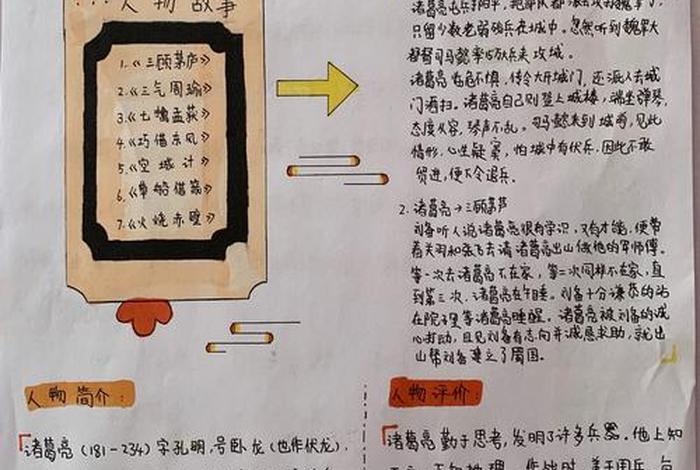 人物故事
1.《三顾茅庐》
2.《三气周瑜》
3.《七擒孟获》
4.《巧借东风》
5.《空城计》
6.《草船借箭》
7.《火烧赤壁》
只留少数老弱残兵在城中。忽然听到魏军大
都督司马懿率15万兵来攻城。
诸葛亮临危不惧,传令大开城门,还派人去城
门洒扫。诸葛亮自己则登上城楼,端坐弹琴,
态度从容,琴声不乱。司马懿来到城前,见此
情形,心生疑窦,怕城中有伏兵,因此不敢
贸进,便下令退兵。
2. 诸葛亮→三顾茅芦
刘备听人说诸葛亮很有学识,又有才能,便带
着关羽和张飞去请诸葛亮出山做他的军师傅。
第一次去诸葛亮不在家,第二次同样不在家,直
到第三次,诸葛亮在午睡。刘备十分谦恭的站
在院子里等诸葛亮睡醒。诸葛亮被刘备的诚
心打动,且见刘备有志向并诚恳求助,就出
山帮刘备建立了蜀国。
人物简介:
诸葛亮(181-234)字孔明,号卧龙(也作伏龙),
人物评价:
诸葛亮勤于思考,发明了许多兵器。他上知